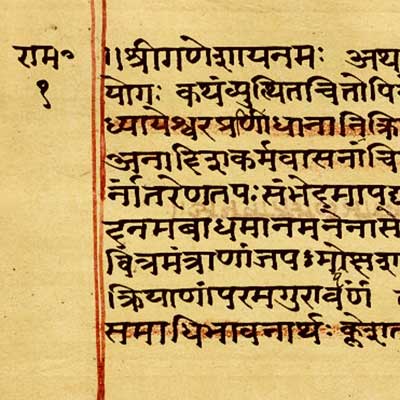 राम॰
१
॥श्रीगणेशायनमः अथ
योगः कथंव्युत्थितचित्तोपि
ध्यायेश्वरप्रणीधानानिक्रि
अनादिक्लेशकर्मवासनाचि
र्नांतरेणतपःसंभेदमापद्य
दनमबाधमानमनेनासे
वित्रमंत्राणांजपः
क्रियाणांपरमगुरावर्पणं
समाधिभावनार्थः क्लेशत